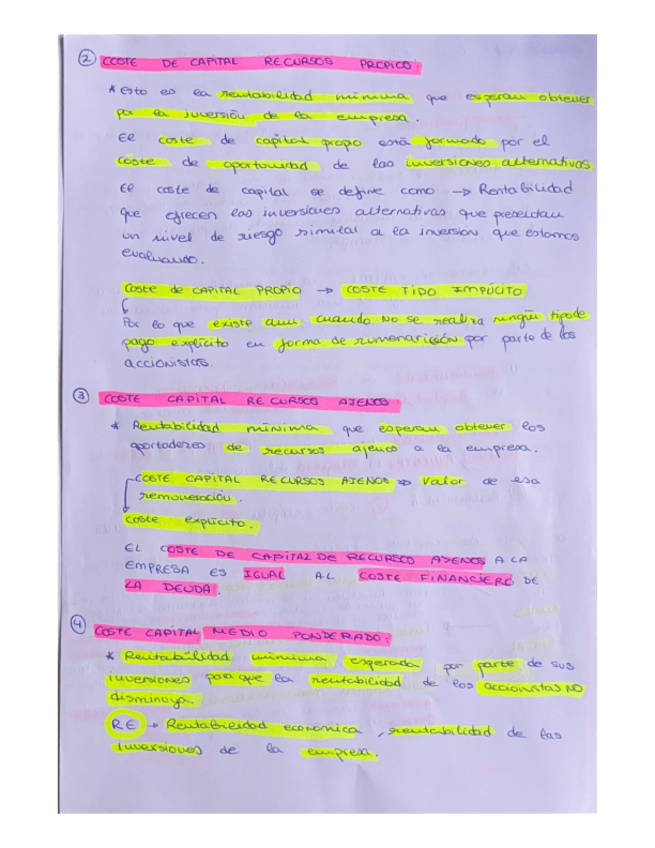 ② COSTE DE CAPITAL RECURSOS PROPIOS:
* esto es la rentabilidad mínima que esperan obtener
por la inversión de la empresa.
El coste de capital propio está formado por el
coste de oportunidad de las inversiones alternativas.
El coste de capital se define como → Rentabilidad
que ofrecen las inversiones alternativas que presentan
un nivel de riesgo similar a la inversión que estamos
evaluando.
Coste de CAPITAL PROPIO → COSTE TIPO IMPLÍCITO
Por lo que existe aun cuando NO se realiza ningún tipo de
pago explícito en forma de por parte de los
accionistas.
③ COSTE CAPITAL RECURSOS AJENOS:
* Rentabilidad mínima que esperan obtener los
aportadores de recursos ajenos a la empresa.
COSTE CAPITAL RECURSOS AJENOS ⇒ Valor de esa
remuneración.
coste explícito.
EL COSTE DE CAPITAL DE RECURSOS AJENOS A LA
EMPRESA ES IGUAL AL COSTE FINANCIERO DE
LA DEUDA.
④ COSTE CAPITAL MEDIO PONDERADO:
* Rentabilidad mínima esperada por parte de sus
inversiones para que la rentabilidad de los accionistas NO
disminuya.
RE → Rentabilidad económica, rentabilidad de las
inversiones de la empresa.